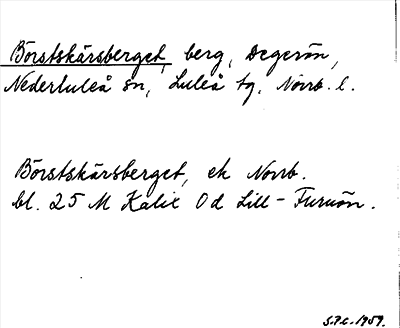 Börstskärsberget, berg, Degerön,
Nederluleå sn, Luleå tg, Norrb. l.
Börstskärsberget, ek Norrb.
bl. 25 M Kalix 0d Lill-Furuön.
S.P.C. 1959.